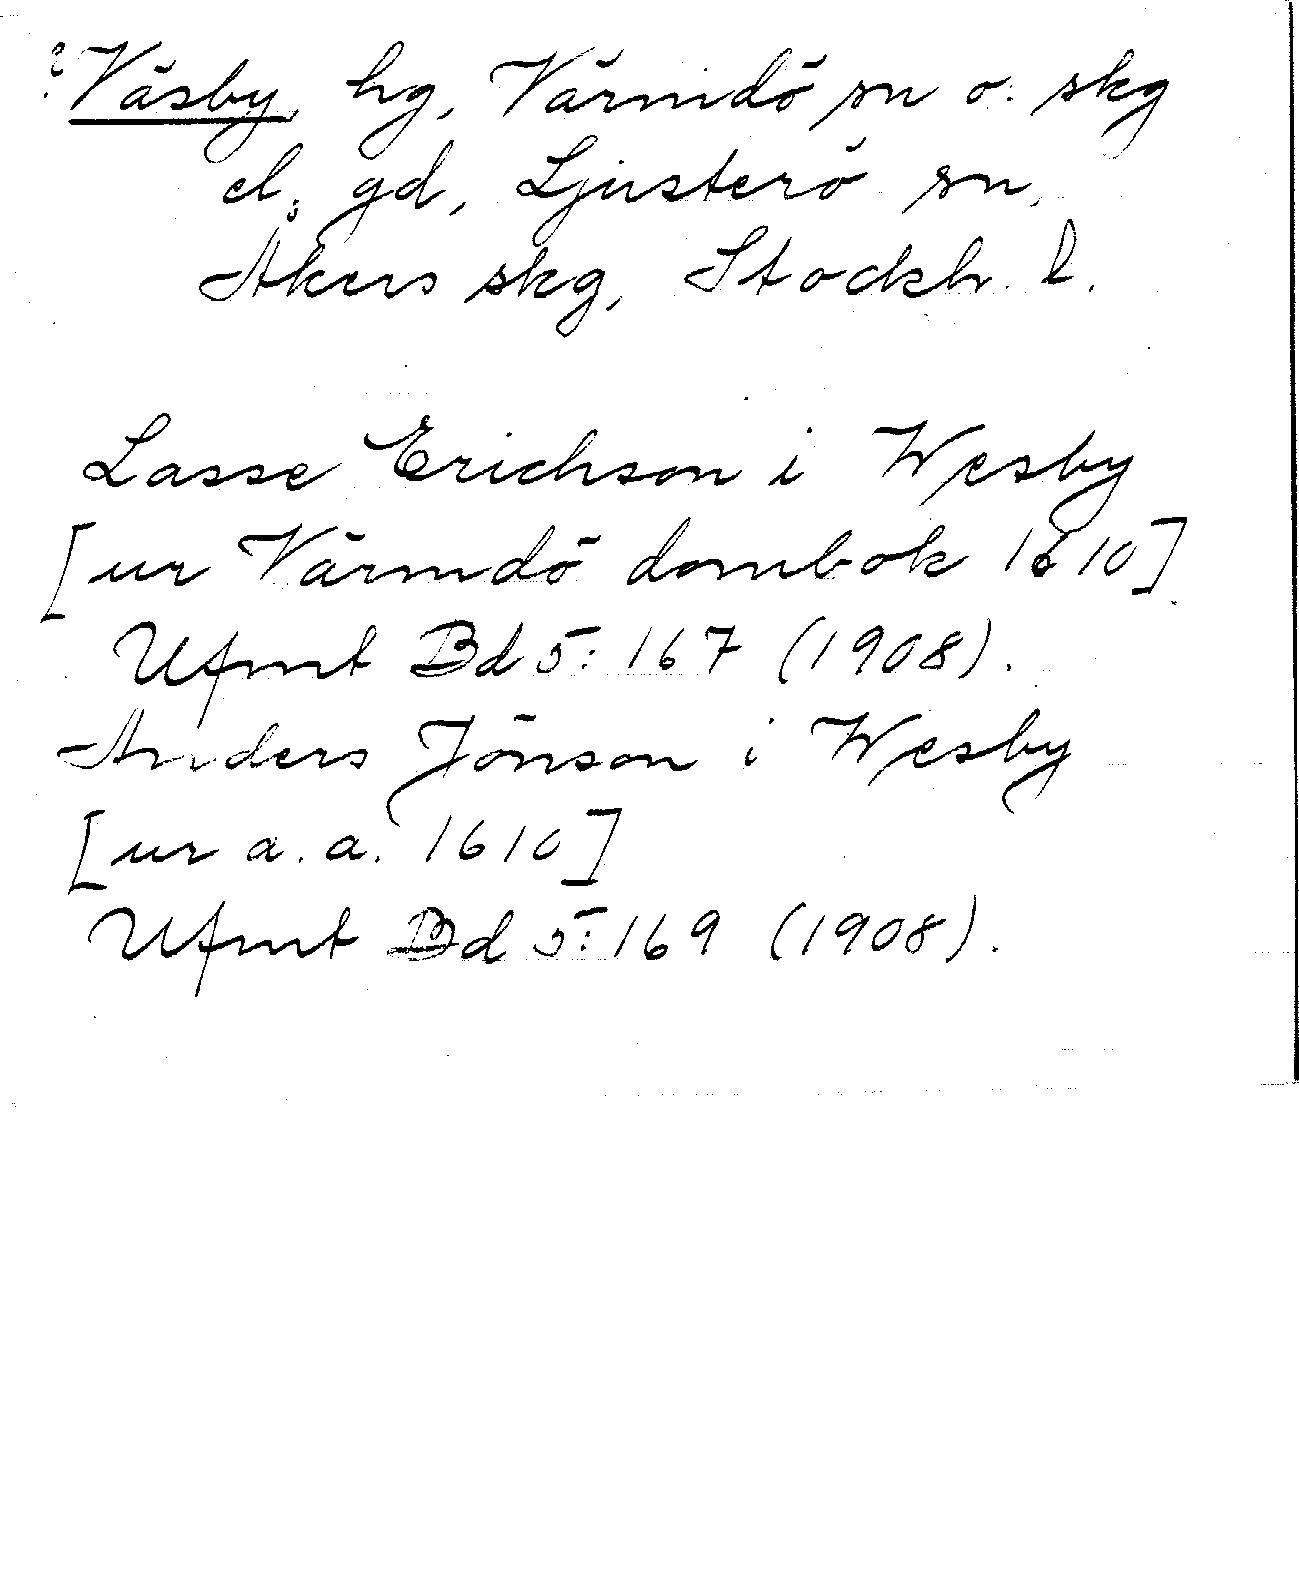 ? Väsby, hg, Värmdö sn o. skg
el. gd, Ljusterö sn,
Åkers skg, Stockh. l.
Lasse Erichson i Wesby
[ur Värmdö dombok 1610]
Ufmt Bd 5: 167 (1908).
Anders Jönson i Wesby
[ur a.a. 1610]
Ufmt Bd 5: 169 (1908).